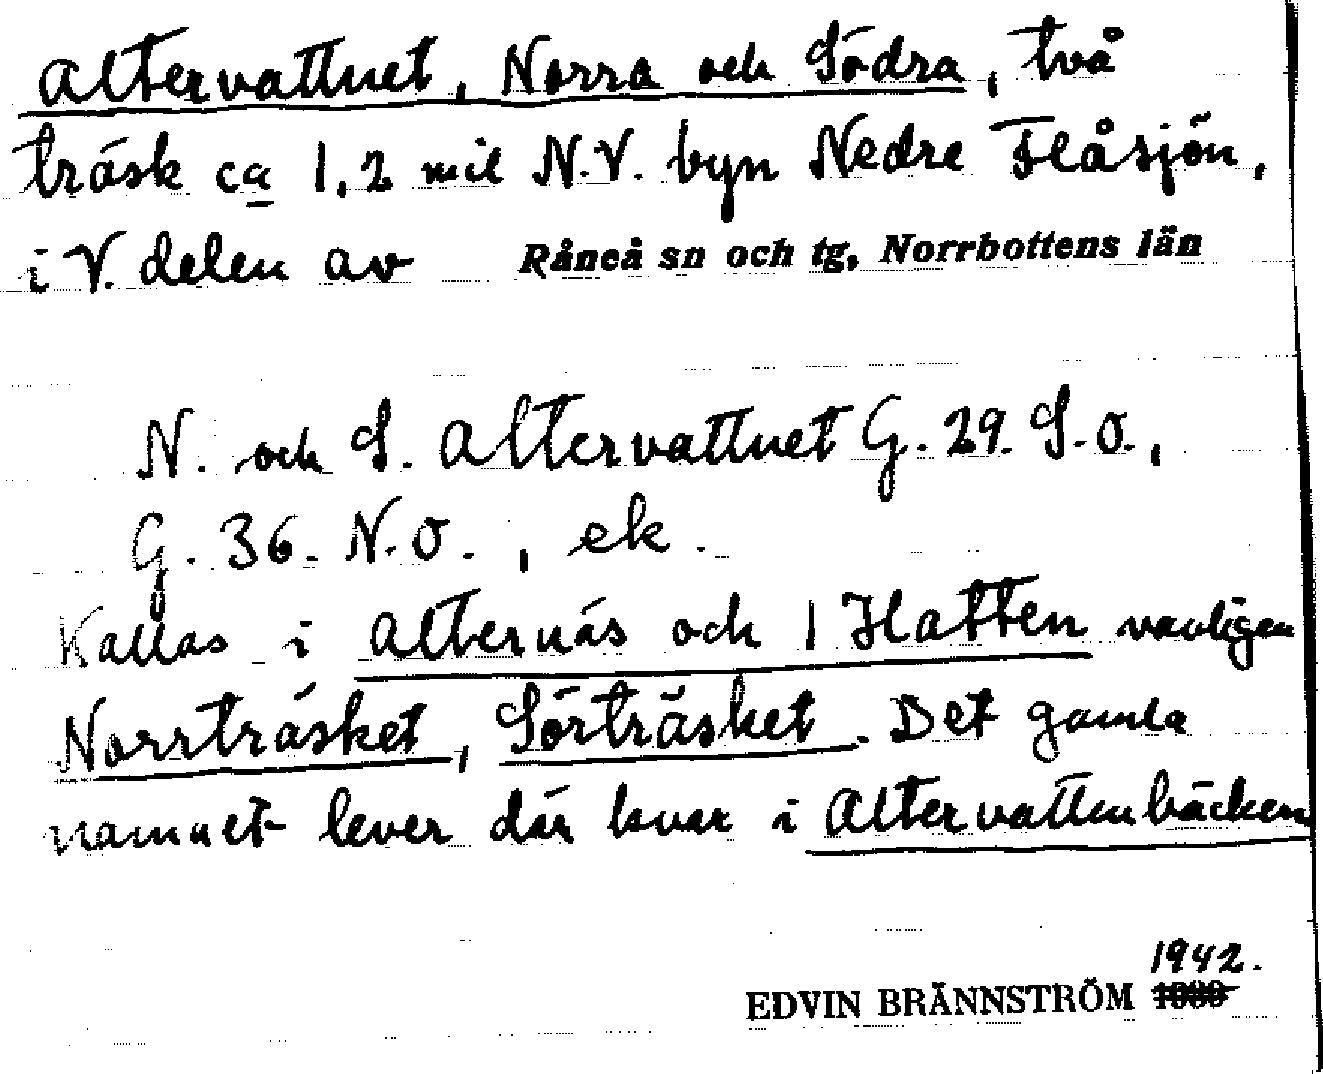 Altervattnet, Norra och Södra, två
träsk ca 1,2 mil N.V. byn Nedre Flåsjön,
i V. delen av Råneå sn och tg, Norrbottens län
N. och S. Altervattnet G. 29. S.O.,
G. 36. N.O., ek.
Kallas i Alternäs och i Hatten vanligen
Norrträsket, Sörträsket. Det gamla
namnet lever där kvar i Altervattenbäcken
1942.
EDVIN BRÄNNSTRÖM